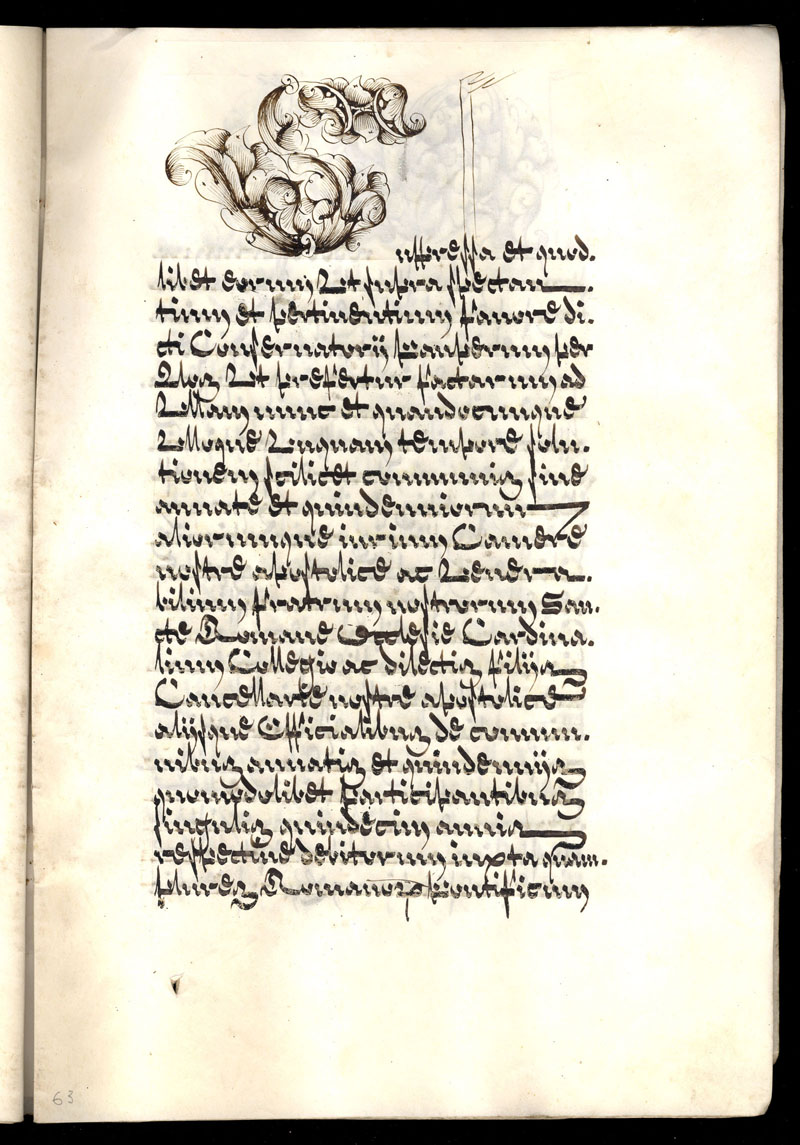 uppressa et quod.
libet eorum Vt supra spectan
tium et pertinentium fauore di.
cti Conseruatorij pauperum per
Vos Vt prefertur factarum ad
Vllam nunc et quandocumque
Vlloque Vnquam tempore solu.
tionem scilicet communis siue
annate et quindenniorum
aliorumque iurium Camere
nostre apostolice ac Venera.
bilium fratrum nostrorum San.
cte Romane Ecclesie Cardina.
lium Collegio ac dilectis filijs
Cancellarie nostre apostolice
alijsque Officialibus de commu.
nibus annatis et quindennijs
quomodolibet participantibus
singulis quindecim annis
respectiue debitorum iuxta quam.
plures Romanorum pontificum
63